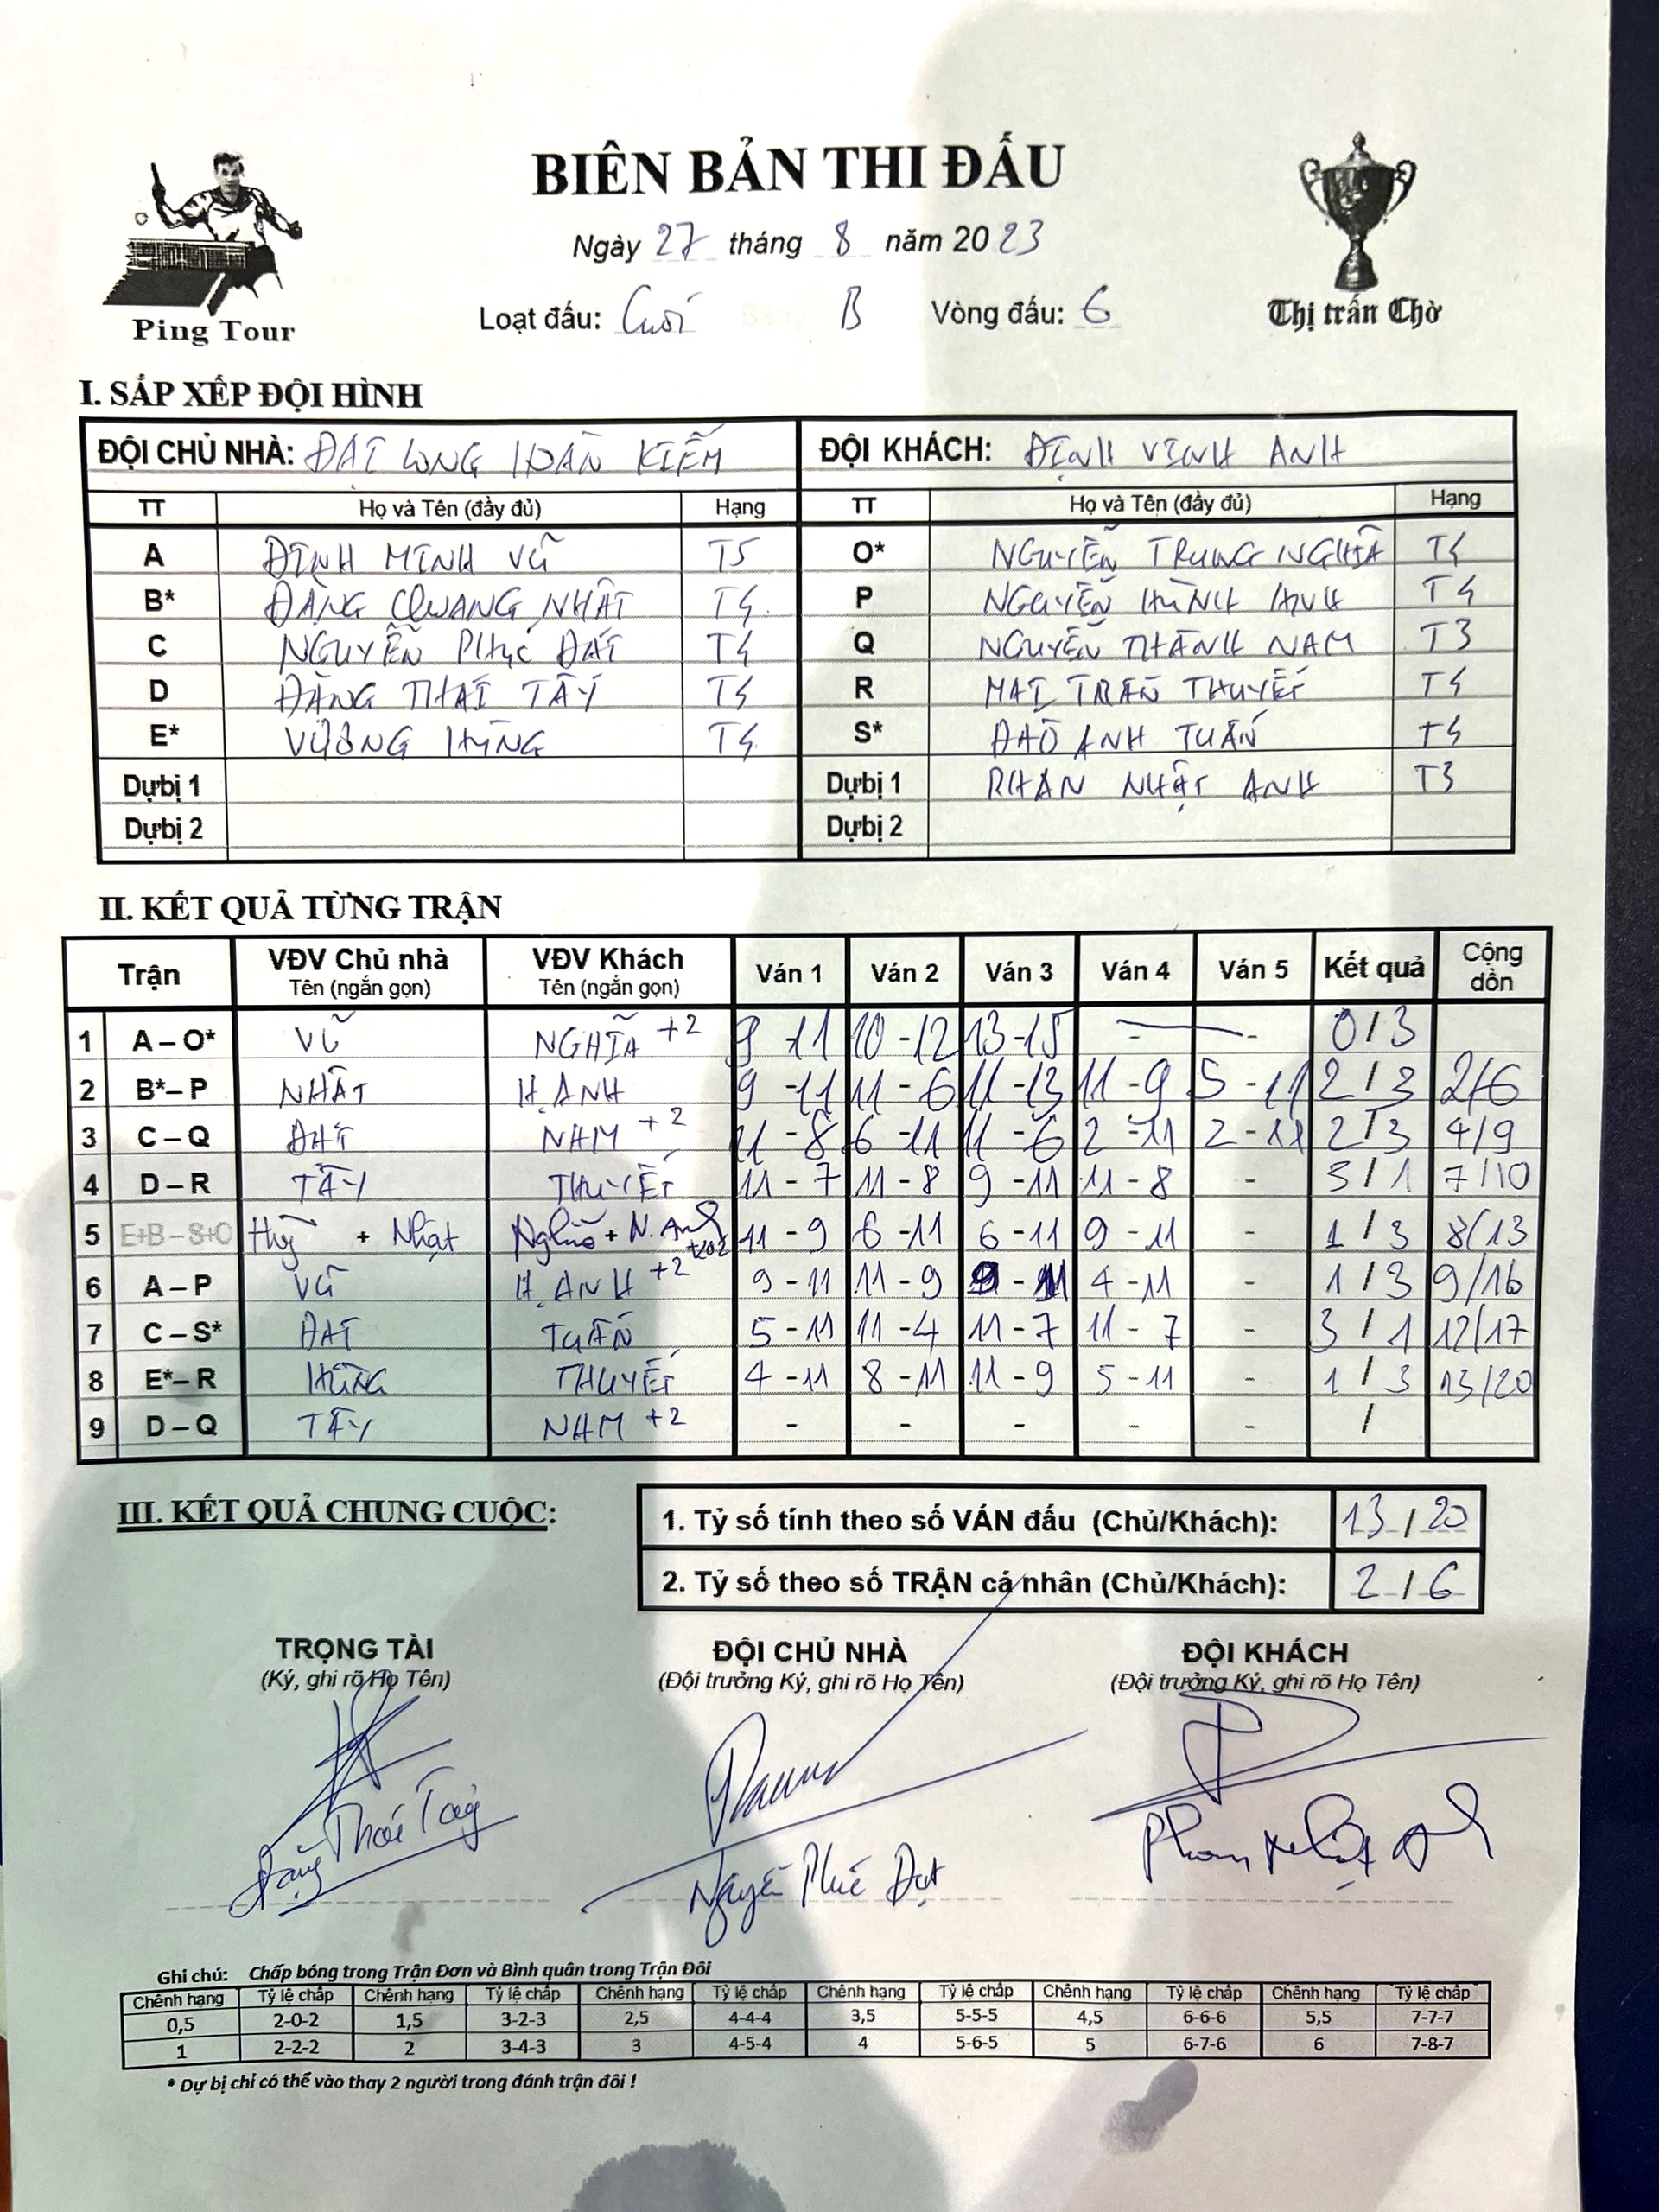 BIÊN BẢN THI ĐẤU
Ngày 27 tháng 8 năm 2023
Ping Tour
Loạt đấu: Cuối Bảng: B Vòng đấu: 6
Thị trấn Chờ
I. SẮP XẾP ĐỘI HÌNH
ĐỘI CHỦ NHÀ: ĐẠI LONG HOÀN KIẾM ĐỘI KHÁCH: ĐỊNH VINH ANH
TT Họ và Tên (đầy đủ) Hạng TT Họ và Tên (đầy đủ) Hạng
A ĐINH MINH VŨ T5 O* NGUYỄN TRUNG NGHĨA T4
B* ĐẶNG QUANG NHẬT T4 P NGUYỄN T4
C NGUYỄN PHÚC ĐẠT T4 Q NGUYỄN THÀNH NAM T3
D ĐẶNG THÁI TÂY T4 R MAI TRẦN THUYẾT T4
E* VƯƠNG HÙNG T4 S* ĐÀO ANH TUẤN T4
Dự bị 1 Dự bị 1 PHAN NHẬT ANH T3
Dự bị 2 Dự bị 2
II. KẾT QUẢ TỪNG TRẬN
Trận VĐV Chủ nhà Tên (ngắn gọn) VĐV Khách Tên (ngắn gọn) Ván 1 Ván 2 Ván 3 Ván 4 Ván 5 Kết quả Cộng dồn
1 A – O* VŨ NGHĨA +2 9 - 11 10 - 12 13 - 15 - - 0 / 3
2 B* – P NHẬT H.ANH 9 - 11 11 - 6 11 - 13 11 - 9 5 - 11 2 / 3 2/6
3 C – Q ĐẠT NAM +2 11 - 8 6 - 11 11 - 6 2 - 11 2 - 11 2 / 3 4/9
4 D – R TÂY THUYẾT 11 - 7 11 - 8 9 - 11 11 - 8 - 3 / 1 7/10
5 E+B – S+O Hùng + Nhật Nghĩa + N.Anh 11 - 9 6 - 11 6 - 11 9 - 11 1 / 3 8/13
6 A – P VŨ H.ANH +2 9 - 11 11 - 9 9 - 11 4 - 11 - 1 / 3 9/16
7 C – S* ĐẠT TUẤN 5 - 11 11 - 4 11 - 7 11 - 7 - 3 / 1 12/17
8 E* – R HÙNG THUYẾT 4 - 11 8 - 11 11 - 9 5 - 11 - 1 / 3 13/20
9 D – Q TÂY NAM +2 - - - - - /
III. KẾT QUẢ CHUNG CUỘC:
1. Tỷ số tính theo số VÁN đấu (Chủ/Khách): 13 / 20
2. Tỷ số theo số TRẬN cá nhân (Chủ/Khách): 2 / 6
TRỌNG TÀI ĐỘI CHỦ NHÀ ĐỘI KHÁCH
(Ký, ghi rõ Họ Tên) (Đội trưởng Ký, ghi rõ Họ Tên) (Đội trưởng Ký, ghi rõ Họ Tên)
Đặng Thái Tây Nguyễn Phúc Đạt Phan Nhật Anh
Ghi chú: Chấp bóng trong Trận Đơn và Bình quân trong Trận Đôi
Chênh hạng Tỷ lệ chấp Chênh hạng Tỷ lệ chấp Chênh hạng Tỷ lệ chấp Chênh hạng Tỷ lệ chấp Chênh hạng Tỷ lệ chấp Chênh hạng Tỷ lệ chấp
0,5 2-0-2 1,5 3-2-3 2,5 4-4-4 3,5 5-5-5 4,5 6-6-6 5,5 7-7-7
1 2-2-2 2 3-4-3 3 4-5-4 4 5-6-5 5 6-7-6 6 7-8-7
* Dự bị chỉ có thể vào thay 2 người trong đánh trận đôi !